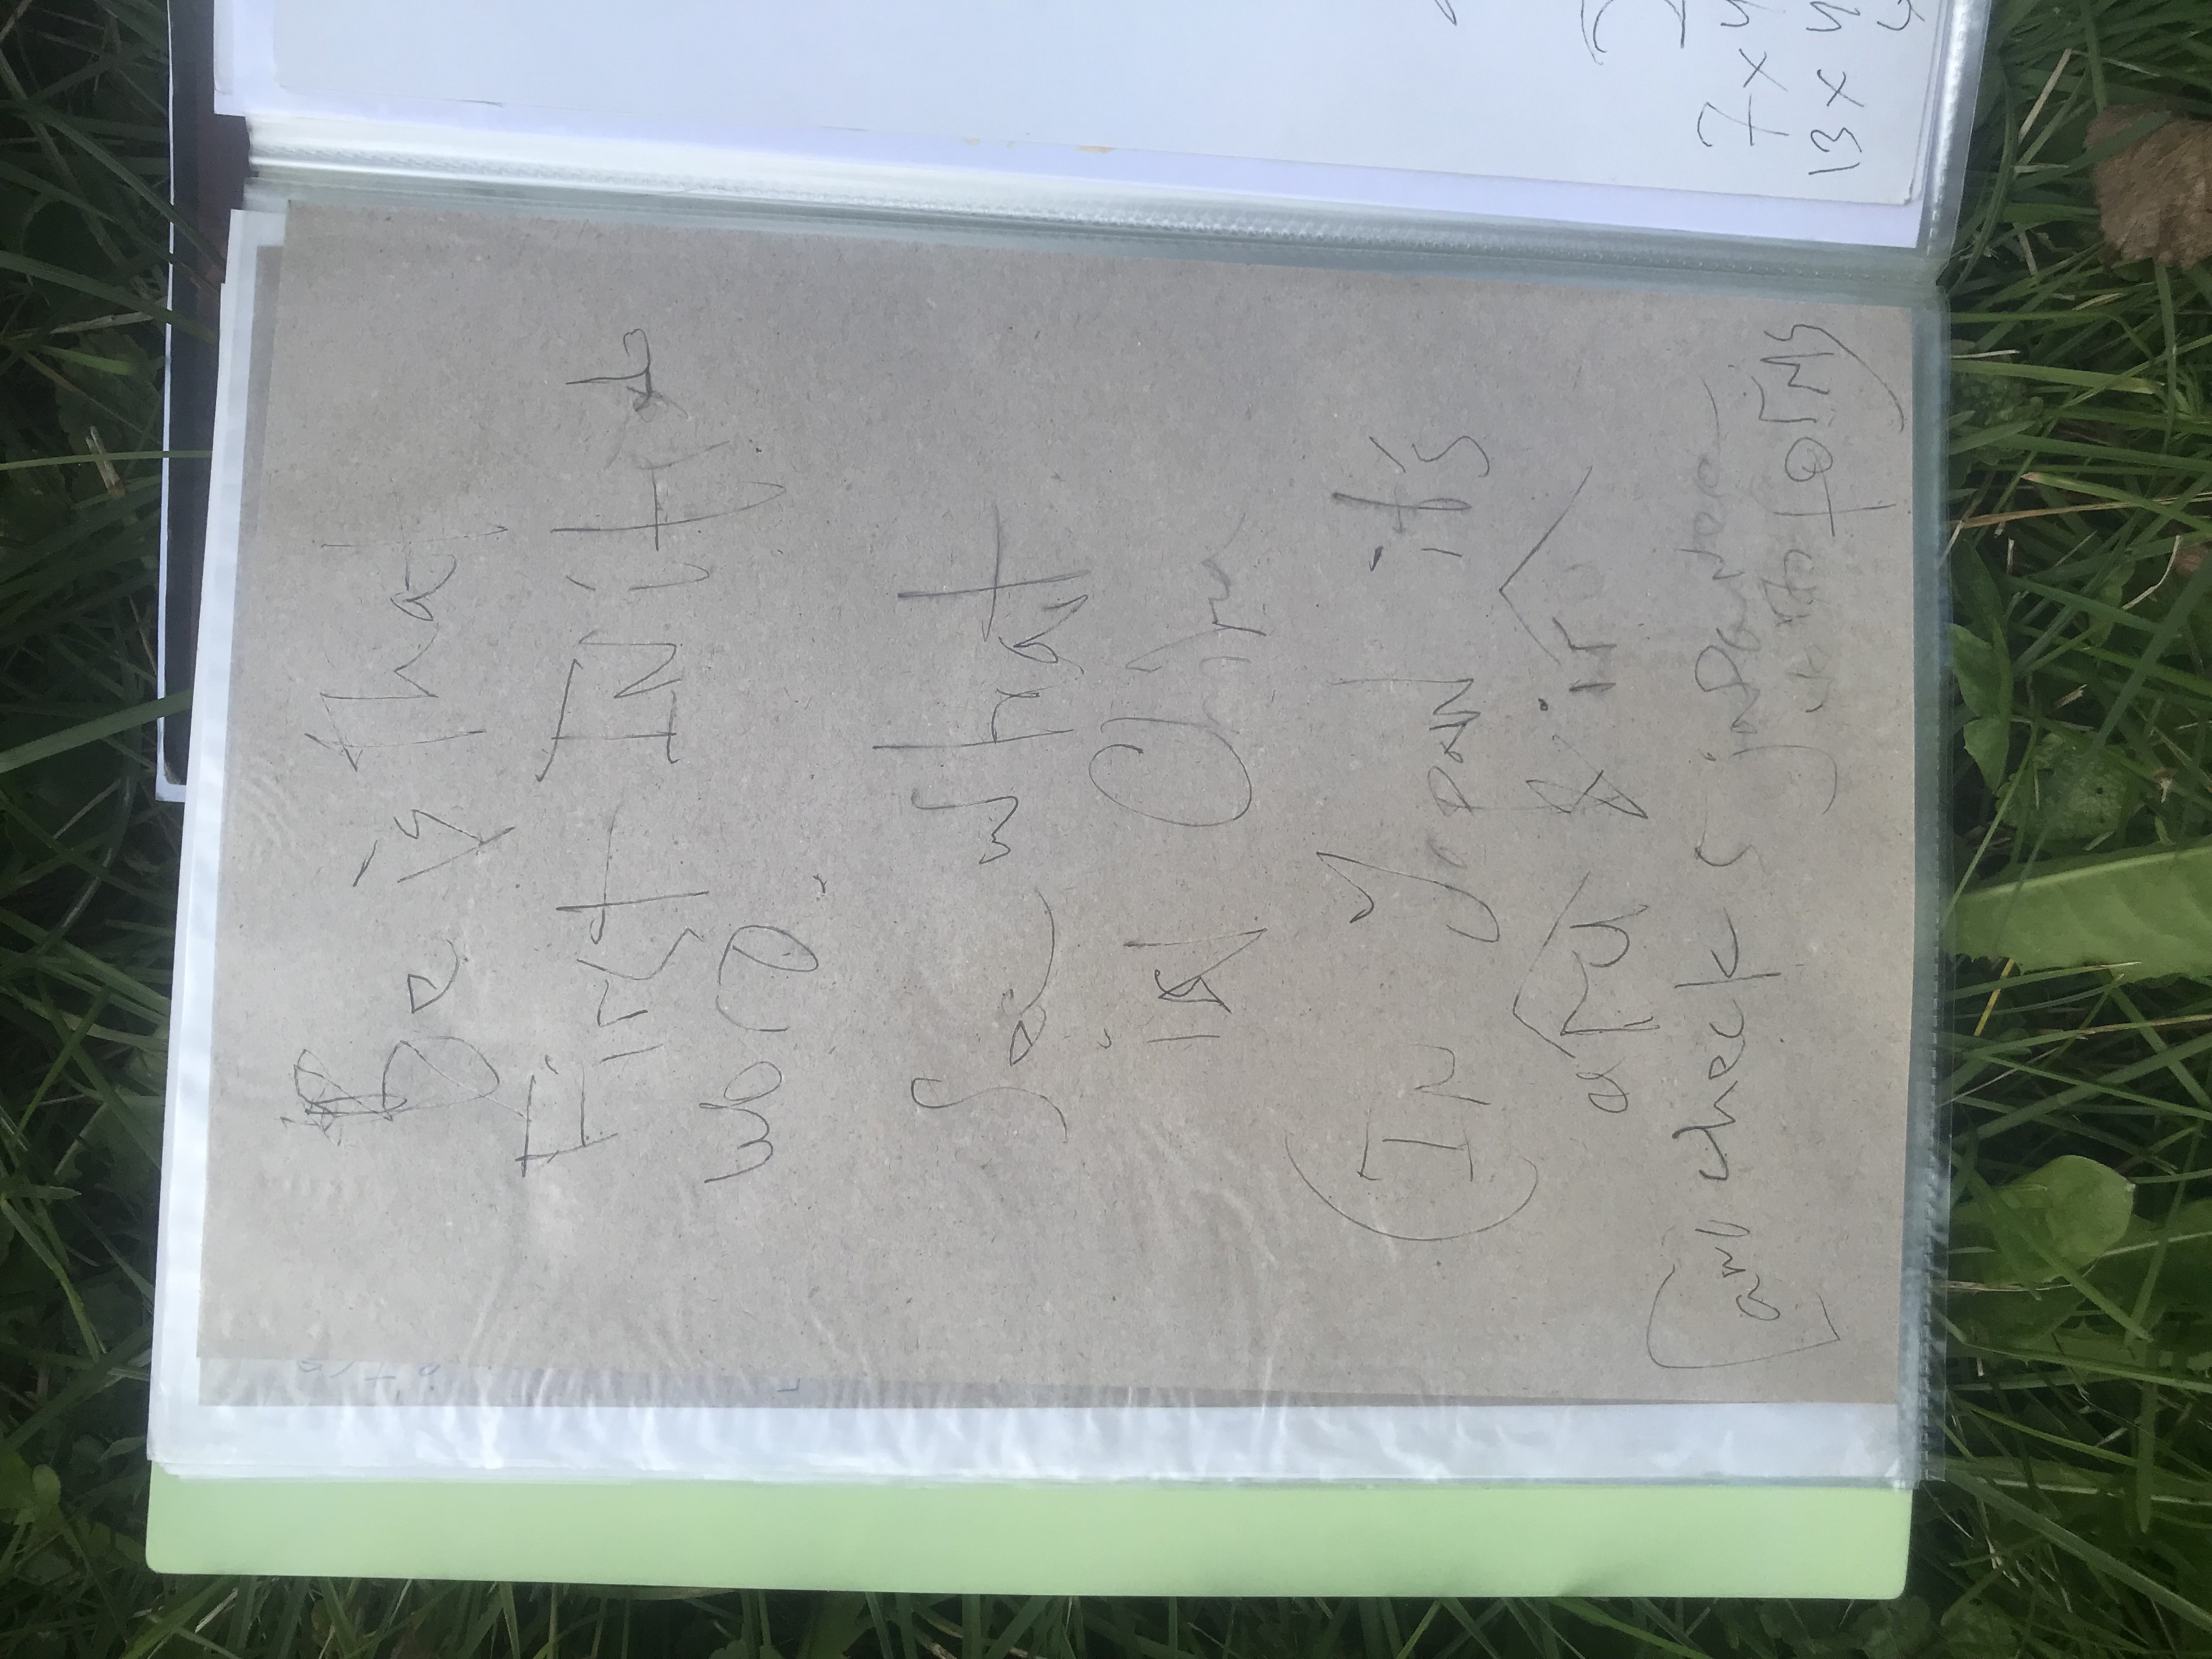 Be is that
First INitial
word.
See what
is China
(In Japan it's
aru & iru
[and check 5 japanese
forms
7 x 4
13 x 4